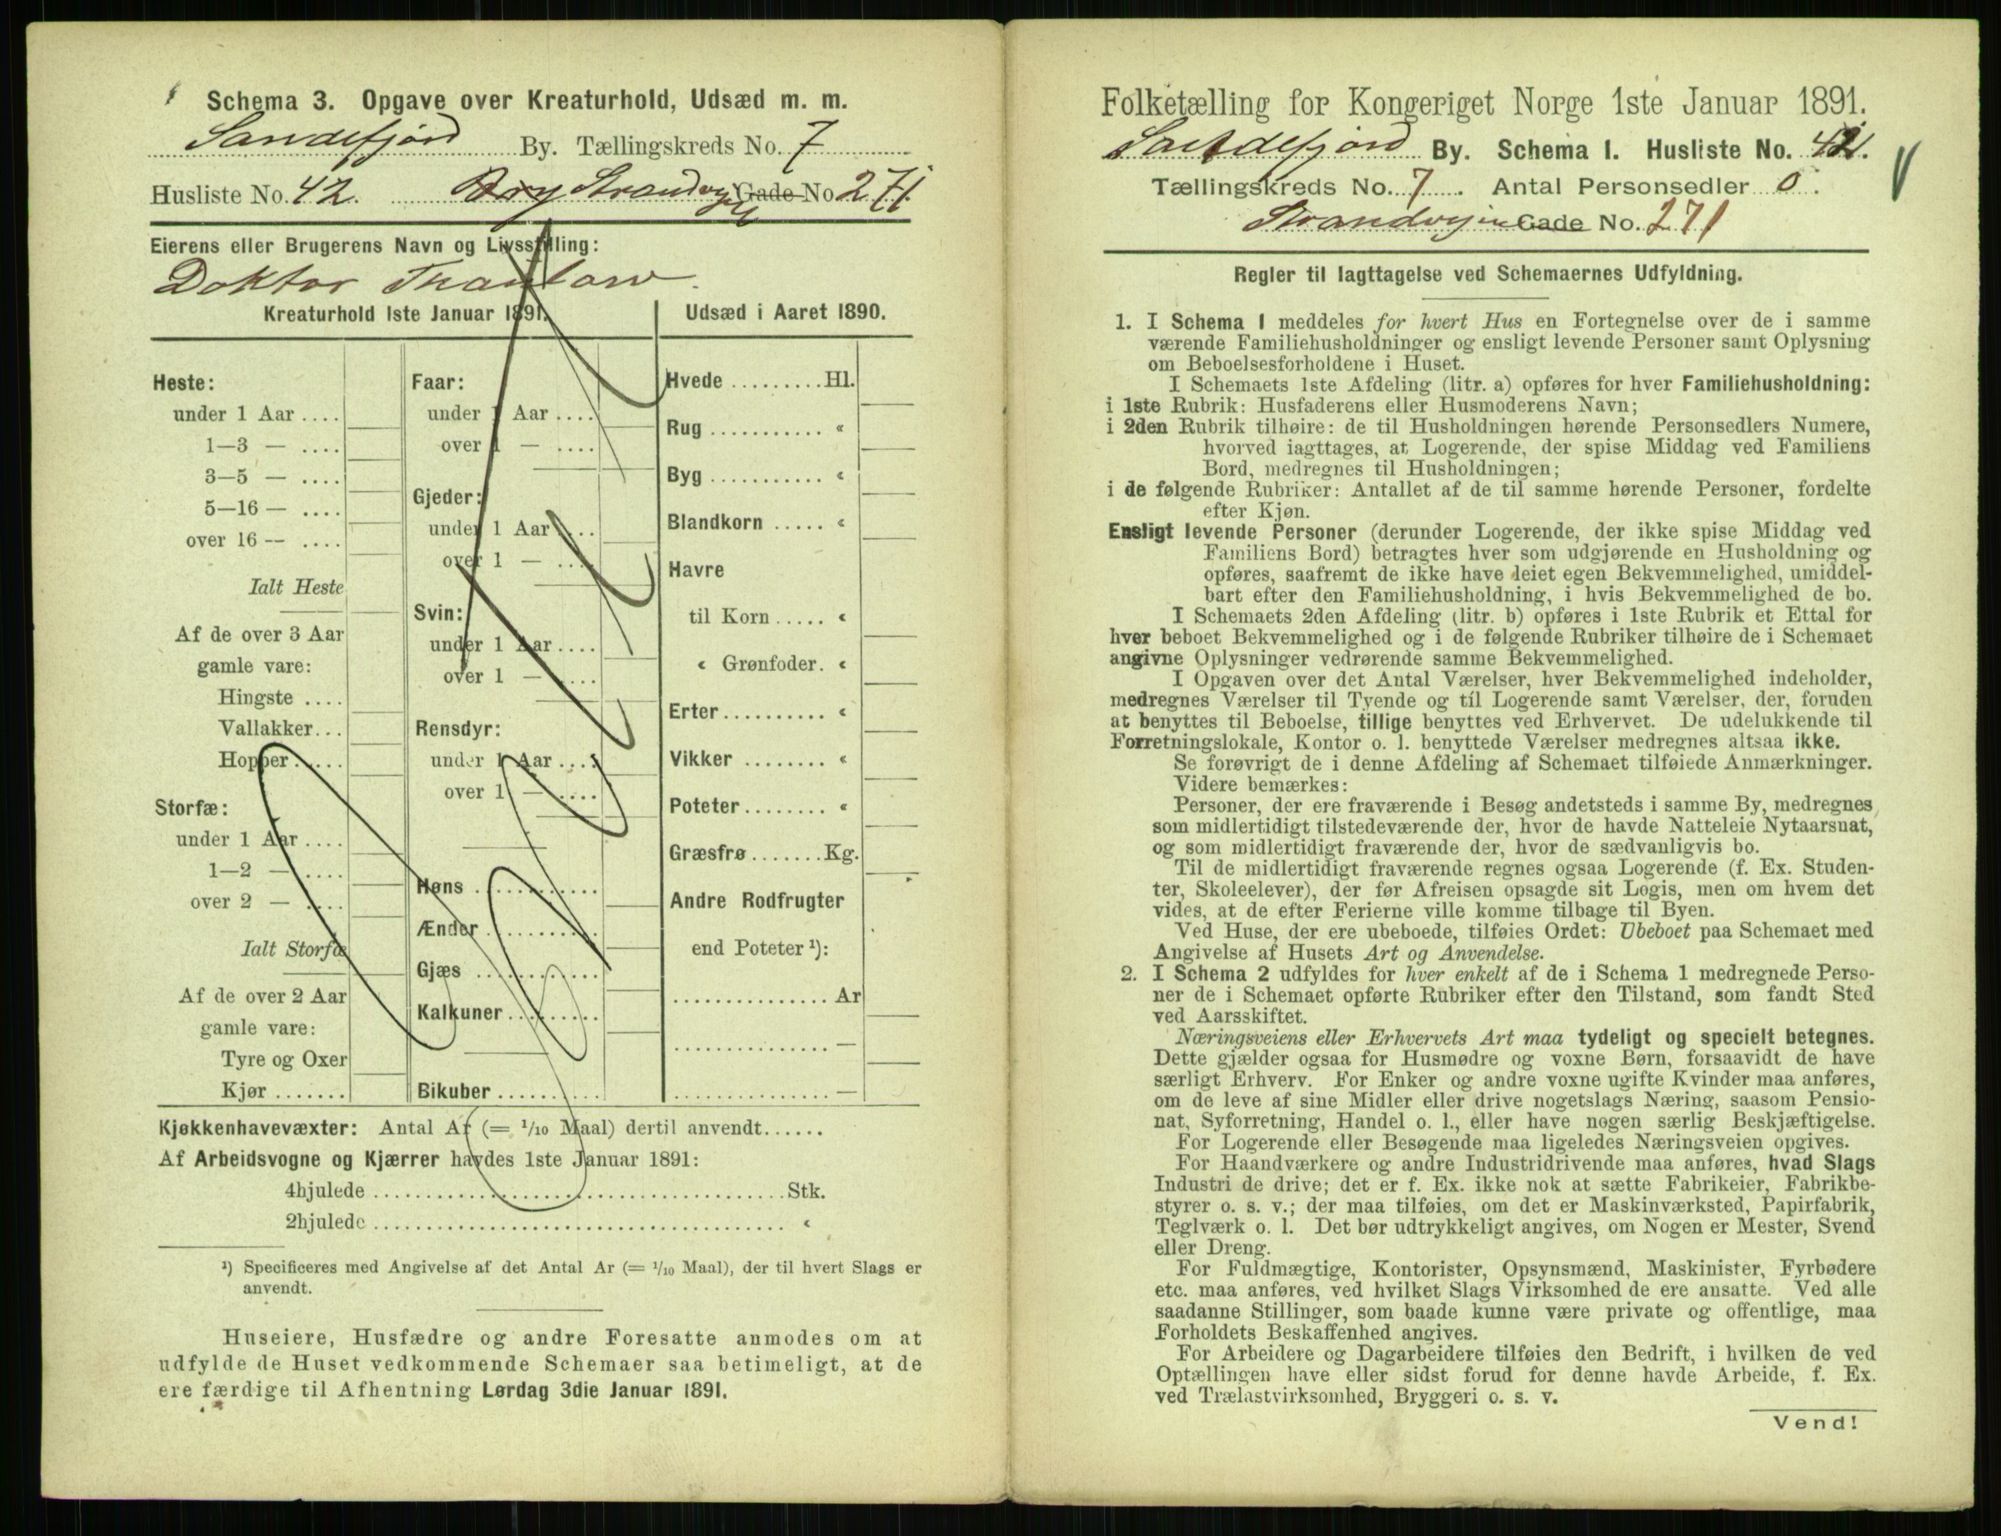 Schema 3. Opgave over Kreaturhold, Udsæd m. m.
Sandefjord By. Tællingskreds No. 7
Husliste No. 42. Strandvejen Gade No. 271.
Eierens eller Brugerens Navn og Livsstilling:
Doktor Thaulow.
Kreaturhold 1ste Januar 1891.
Heste:
under 1 Aar ....
1—3 — ....
3—5 — ....
5—16 — ....
over 16 -- ....
Ialt Heste
Af de over 3 Aar
gamle vare:
Hingste ....
Vallakker...
Hopper.....
Storfæ:
under 1 Aar ....
1—2 — ....
over 2 — ....
Ialt Storfæ
Af de over 2 Aar
gamle vare:
Tyre og Oxer
Kjør .......
Faar:
under 1 Aar ....
over 1 — ....
Gjeder:
under 1 Aar ....
over 1 — ....
Svin:
under 1 Aar ....
over 1 — ....
Rensdyr:
under 1 Aar ....
over 1 — ....
Høns ...........
Ænder ...........
Gjæs ...........
Kalkuner.........
Bikuber..........
Udsæd i Aaret 1890.
Hvede .........Hl.
Rug ........... «
Byg ........... «
Blandkorn ..... «
Havre
til Korn ..... «
« Grønfoder. «
Erter.......... «
Vikker ........ «
Poteter........ «
Græsfrø.......Kg.
Andre Rodfrugter
end Poteter ¹):
............... Ar
............... —
............... —
Kjøkkenhavevæxter: Antal Ar (= 1/10 Maal) dertil anvendt......
Af Arbeidsvogne og Kjærrer havdes 1ste Januar 1891:
4hjulede ........................................Stk.
2hjulede ........................................ «
¹) Specificeres med Angivelse af det Antal Ar (= 1/10 Maal), der til hvert Slags er
anvendt.
Huseiere, Husfædre og andre Foresatte anmodes om at
udfylde de Huset vedkommende Schemaer saa betimeligt, at de
ere færdige til Afhentning Lørdag 3die Januar 1891.
Folketælling for Kongeriget Norge 1ste Januar 1891.
Sandefjord By. Schema 1. Husliste No. 42.
Tællingskreds No. 7. Antal Personsedler 0.
Strandvejen Gade No. 271
Regler til Iagttagelse ved Schemaernes Udfyldning.
1. I Schema 1 meddeles for hvert Hus en Fortegnelse over de i samme
værende Familiehusholdninger og ensligt levende Personer samt Oplysning
om Beboelsesforholdene i Huset.
I Schemaets 1ste Afdeling (litr. a) opføres for hver Familiehusholdning:
i 1ste Rubrik: Husfaderens eller Husmoderens Navn;
i 2den Rubrik tilhøire: de til Husholdningen hørende Personsedlers Numere,
hvorved iagttages, at Logerende, der spise Middag ved Familiens
Bord, medregnes til Husholdningen;
i de følgende Rubriker: Antallet af de til samme hørende Personer, fordelte
efter Kjøn.
Ensligt levende Personer (derunder Logerende, der ikke spise Middag ved
Familiens Bord) betragtes hver som udgjørende en Husholdning og
opføres, saafremt de ikke have leiet egen Bekvemmelighed, umiddel-
bart efter den Familiehusholdning, i hvis Bekvemmelighed de bo.
I Schemaets 2den Afdeling (litr. b) opføres i 1ste Rubrik et Ettal for
hver beboet Bekvemmelighed og i de følgende Rubriker tilhøire de i Schemaet
angivne Oplysninger vedrørende samme Bekvemmelighed.
I Opgaven over det Antal Værelser, hver Bekvemmelighed indeholder,
medregnes Værelser til Tyende og til Logerende samt Værelser, der, foruden
at benyttes til Beboelse, tillige benyttes ved Erhvervet. De udelukkende til
Forretningslokale, Kontor o. l. benyttede Værelser medregnes altsaa ikke.
Se forøvrigt de i denne Afdeling af Schemaet tilføiede Anmærkninger.
Videre bemærkes:
Personer, der ere fraværende i Besøg andetsteds i samme By, medregnes
som midlertidigt tilstedeværende der, hvor de havde Natteleie Nytaarsnat,
og som midlertidigt fraværende der, hvor de sædvanligvis bo.
Til de midlertidigt fraværende regnes ogsaa Logerende (f. Ex. Studen-
ter, Skoleelever), der før Afreisen opsagde sit Logis, men om hvem det
vides, at de efter Ferierne ville komme tilbage til Byen.
Ved Huse, der ere ubeboede, tilføies Ordet: Ubeboet paa Schemaet med
Angivelse af Husets Art og Anvendelse.
2. I Schema 2 udfyldes for hver enkelt af de i Schema 1 medregnede Perso-
ner de i Schemaet opførte Rubriker efter den Tilstand, som fandt Sted
ved Aarsskiftet.
Næringsveiens eller Erhvervets Art maa tydeligt og specielt betegnes.
Dette gjælder ogsaa for Husmødre og voxne Børn, forsaavidt de have
særligt Erhverv. For Enker og andre voxne ugifte Kvinder maa anføres,
om de leve af sine Midler eller drive nogetslags Næring, saasom Pensio-
nat, Syforretning, Handel o. l., eller have nogen særlig Beskjæftigelse.
For Logerende eller Besøgende maa ligeledes Næringsveien opgives.
For Haandværkere og andre Industridrivende maa anføres, hvad Slags
Industri de drive; det er f. Ex. ikke nok at sætte Fabrikeier, Fabrikbe-
styrer o. s. v.; der maa tilføies, om det er Maskinværksted, Papirfabrik,
Teglværk o. l. Det bør udtrykkeligt angives, om Nogen er Mester, Svend
eller Dreng.
For Fuldmægtige, Kontorister, Opsynsmænd, Maskinister, Fyrbødere
etc. maa anføres, ved hvilket Slags Virksomhed de ere ansatte. Ved alle
saadanne Stillinger, som baade kunne være private og offentlige, maa
Forholdets Beskaffenhed angives.
For Arbeidere og Dagarbeidere tilføies den Bedrift, i hvilken de ved
Optællingen have eller sidst forud for denne havde Arbeide, f. Ex.
ved Trælastvirksomhed, Bryggeri o. s. v.
Vend!